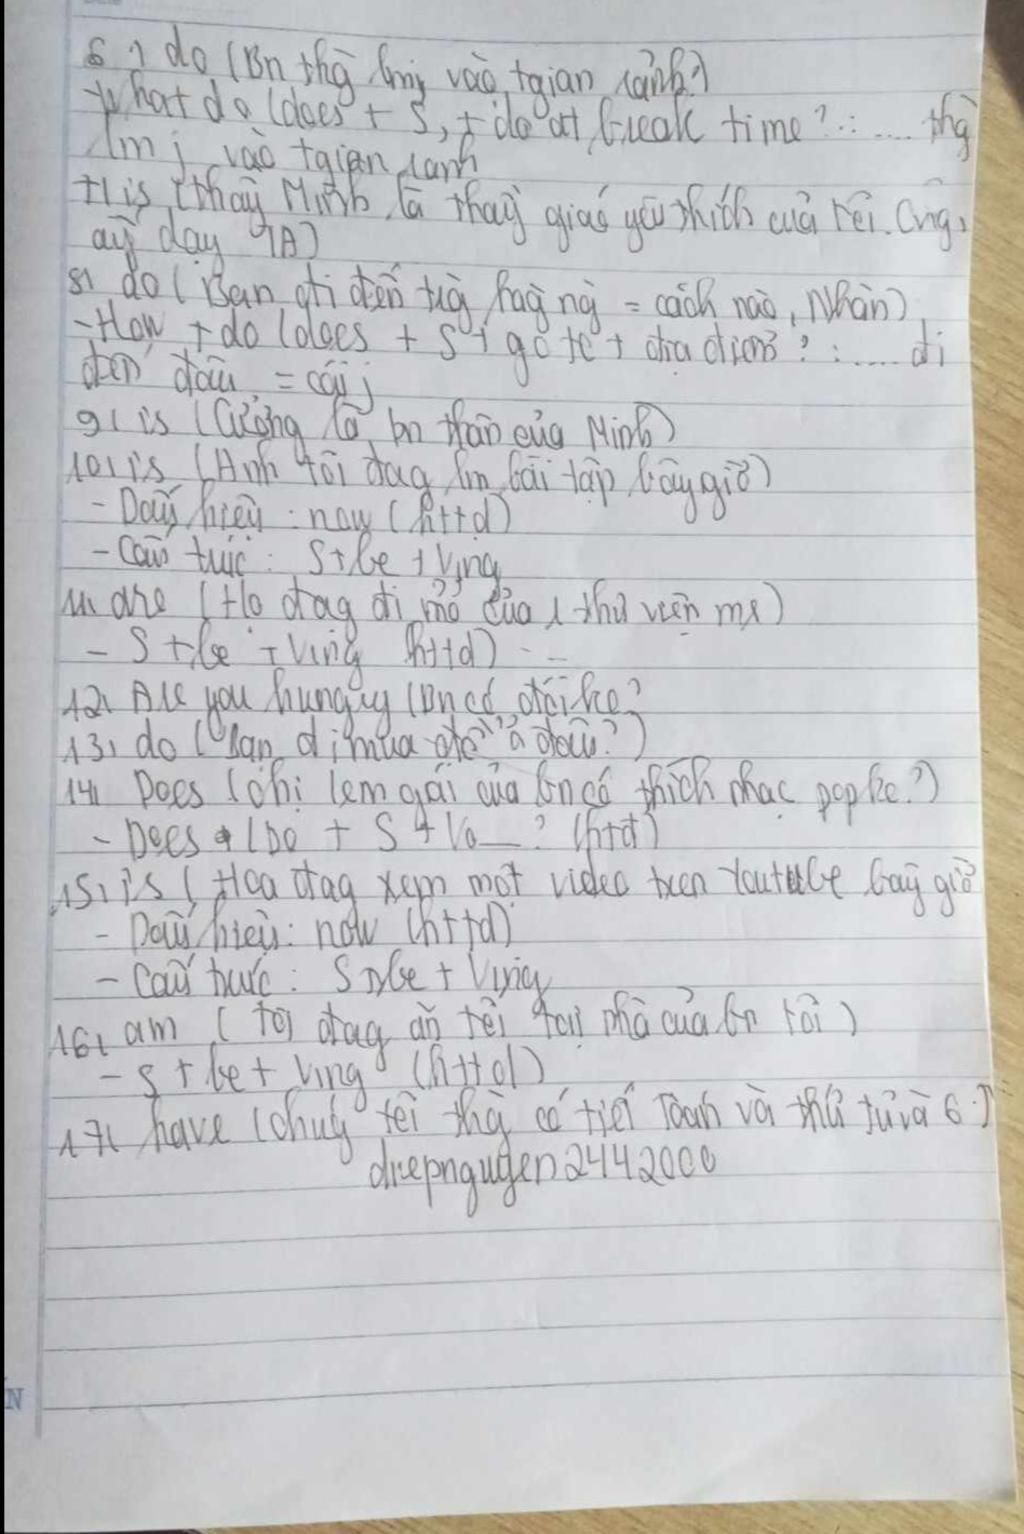 6.) do (Bn thg lmj vào tgian rảnh?)
What do (does + S, + do at break time? : .... thg
lm j vào tgian ranh
7) is (thầy Minh là thầy giáo yêu thích của tôi. Ông
ấy dạy 7A)
8) do (Bạn đi đến hàg ng = cách nào, Nhàn)
- How + do (does + S + go to + địa điểm? : .... đi
đến đâu = cái j
9) is (Cường là bn thân của Minh)
10) is (Anh tôi đag lm bài tập bây giờ)
- Dấu hiệu : now (httd)
- Cấu trúc : S + be + Ving
11) are (Họ đag đi của 1 thư viện ms)
- S + be + Ving httd)
12) Are you hungry (Bn có đói ko?
13) do (Bạn đi mua đồ ở đâu?)
14) Does (chị (em gái của bn có thích nhạc pop ko?)
- Does (Do + S + Vo __ ? (htđ)
15) is ( Hoa đag xem một video trên Youtube bây giờ
- Dấu hiệu: now (httd)
- Cấu trúc : S + be + Ving
16) am ( tôi đag ăn tối tại nhà của bn tôi )
- S + be + Ving (httd)
17) have (chúg tôi thg có tiết Toán và thứ tư và 6.)
diepnguyen2442000
N